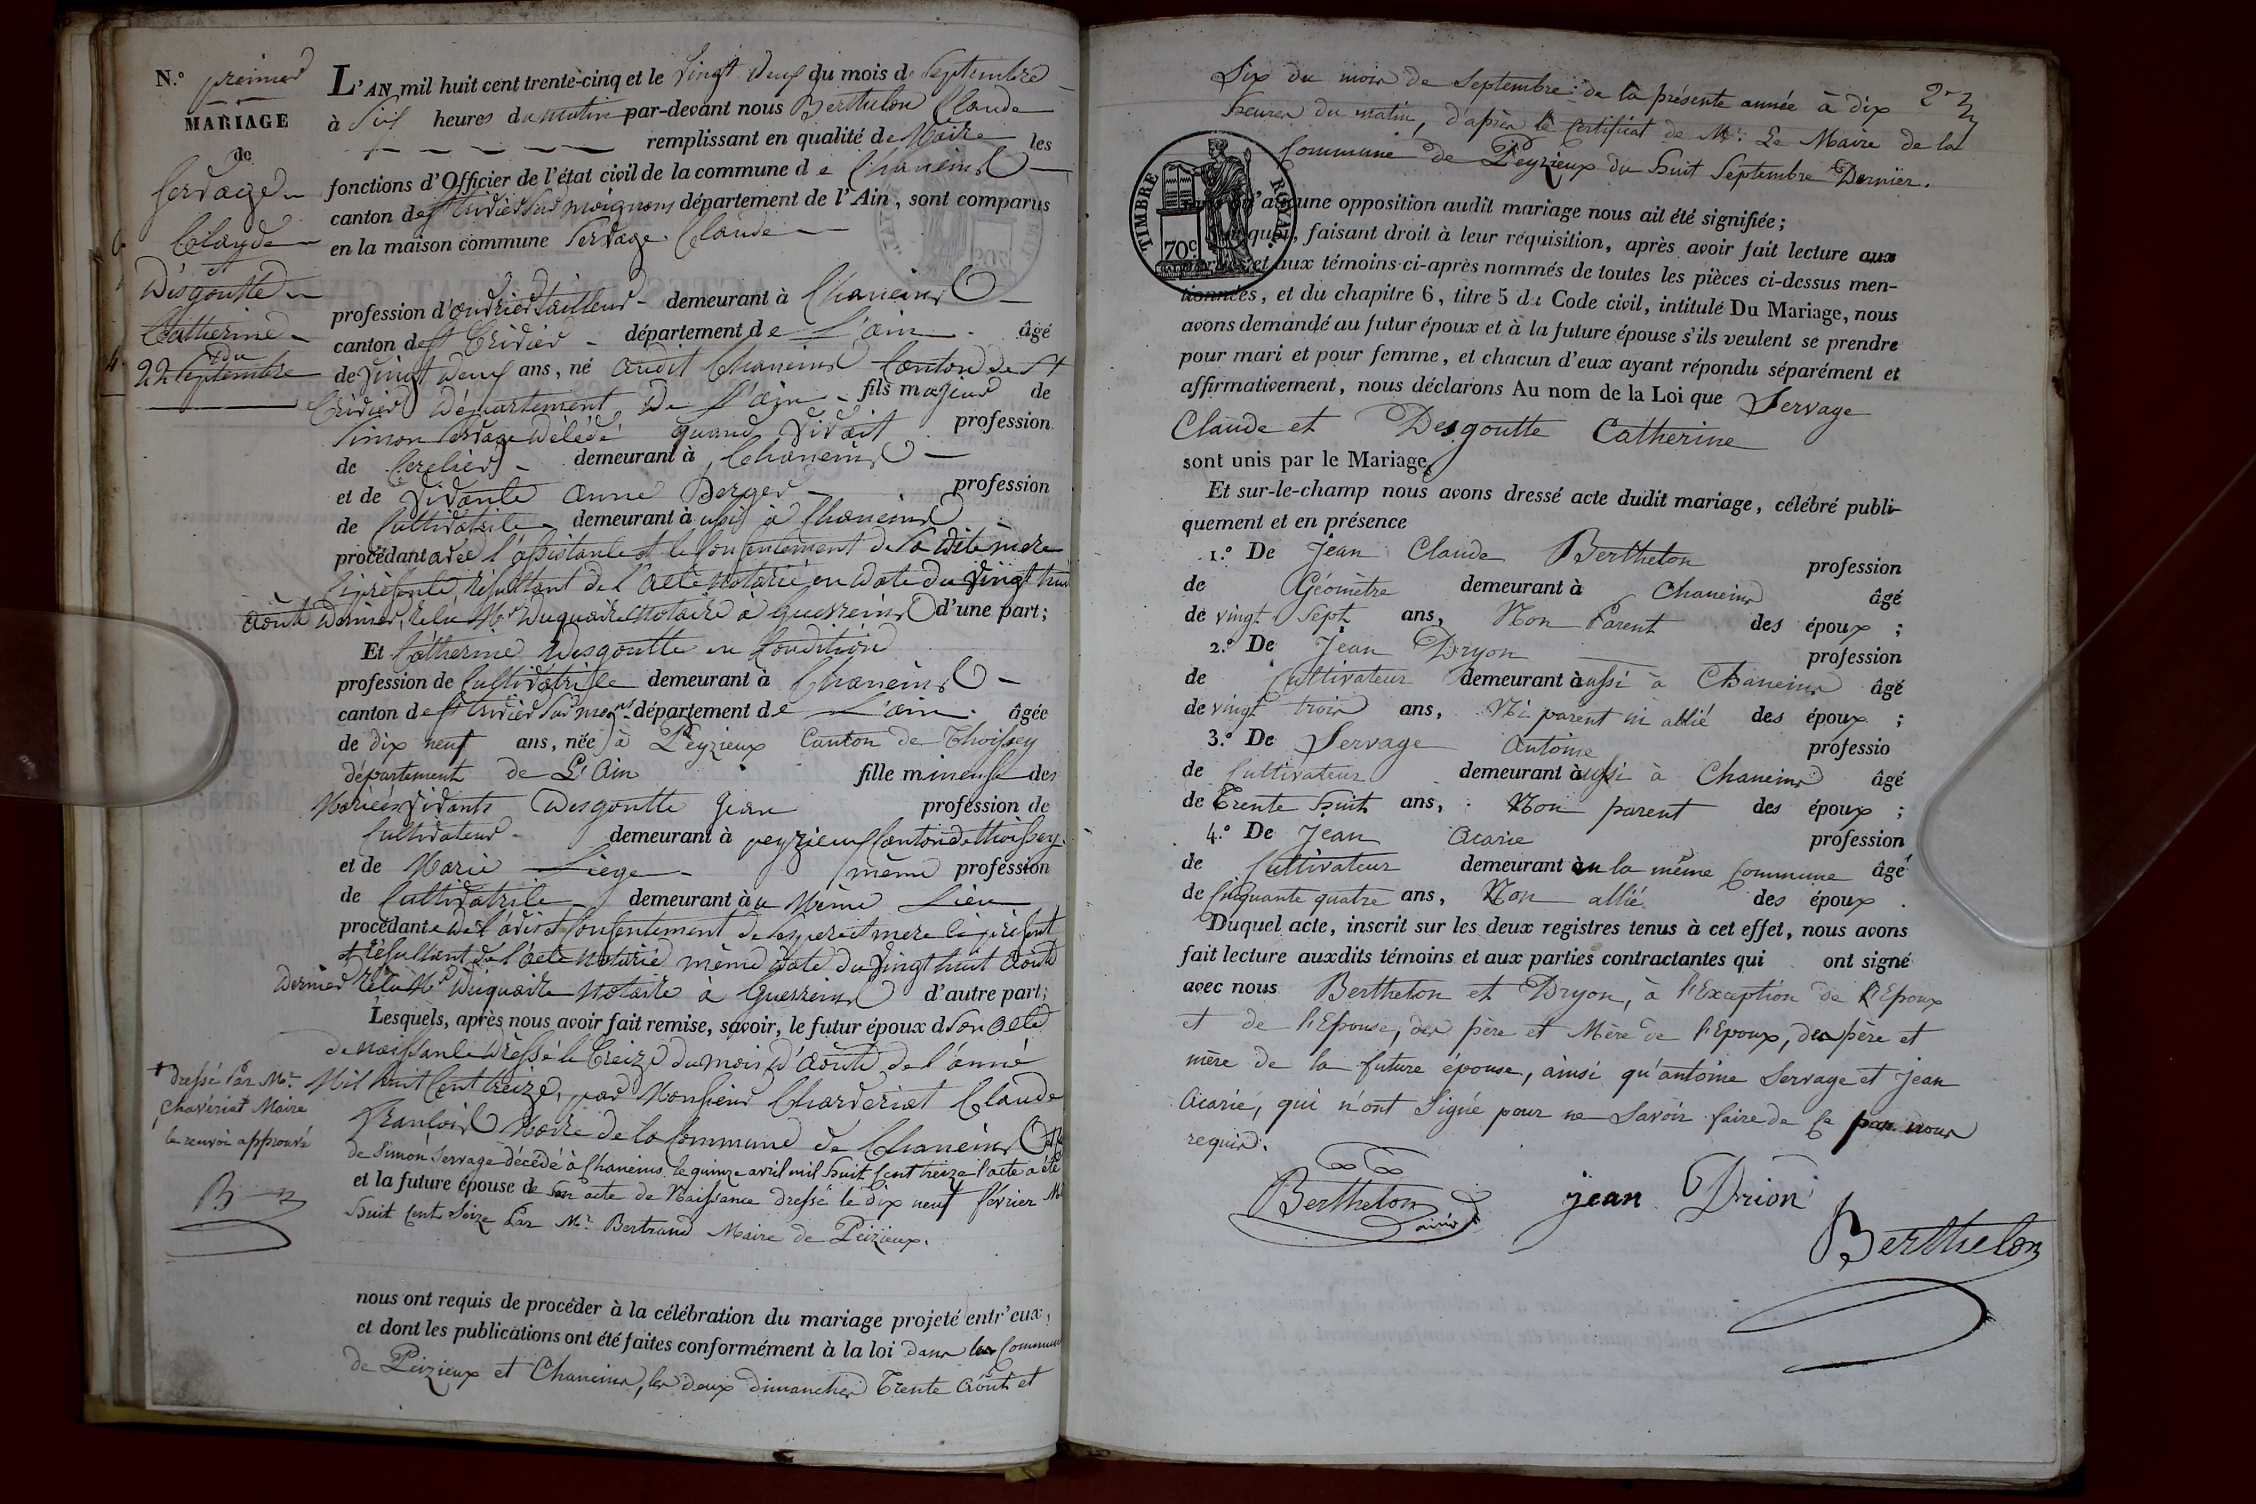 N.° premier
MARIAGE
de
Servage
Claude
et
Désgoutte
Catherine
du
22 Septembre
L'AN mil huit cent trente-cinq et le vingt deux du mois de Septembre
à Six heures du matin par-devant nous Berthelon Claude
remplissant en qualité de Maire les
fonctions d'Officier de l'état civil de la commune de Chaneins
canton de St Trivier Sur moignans département de l'Ain, sont comparus
en la maison commune Servage Claude
profession d'ouvrier tailleur demeurant à Chaneins
canton de St Trivier département de L'ain âgé
de vingt deux ans, né audit Chaneins Canton de St
Trivier Département De L'ain fils majeur de
Simon Servage Décédé quand vivait profession
de Cerclier demeurant à Chaneins
et de vivante anne Berger profession
de Cultivatrice demeurant à ussi à Chaneins
procédant avec l'assistance et le Consentement de Sa dite mère
ci présente résultant de l'acte Notarié en date du vingt huit
août Dernier, reçu Mr Duquaire Notaire à Guerreins d'une part;
Et Catherine Desgoutte en Condition
profession de Cultivatrice demeurant à Chaneins
canton de St Trivier Sur mog.ns département de L'ain âgée
de dix neuf ans, née à Peyzieux Canton de Thoissey
département de L'Ain fille mineuse des
Mariés vivants Desgoutte Jean profession de
Cultivateur demeurant à peyzieux Canton de Thoissey
et de Marie Liège même profession
de Cultivatrice demeurant à u Même Lieu
procédante de l'avis et Consentement de Ses père et mere ci présent
et résultant de l'acte Notarié même date du vingt huit août
Dernier reçu Mr Duquaire Notaire à Guerreins d'autre part;
Lesquels, après nous avoir fait remise, savoir, le futur époux d Son acte
de Naissance Dressé le Treize du mois d'août de l'anné
Mil huit Cent treize, par Monsieur Chaveriat Claude
François Maire de la Commune de Chaneins
de Simon Servage décédé à Chaneins le quinze avril mil huit Cent treize l'acte a été
et la future épouse de Son acte de Naissance Dressé le dix neuf février Mil
huit Cent Seize Par Mr Bertrand Maire de Peizieux.
† dressé Par Mr
Chavériat Maire
le renvoi approuvé
B
nous ont requis de procéder à la célébration du mariage projeté entr'eux,
et dont les publications ont été faites conformément à la loi dans les Communes
de Peizieux et Chaneins, les deux dimanches Trente Août et
Six du mois de Septembre de la présente année à dix
heures du matin, d'après le Certificat de Mr Le Maire de la
Commune de Peyzieux du huit Septembre Dernier.
TIMBRE ROYAL.
70c
qu'aucune opposition audit mariage nous ait été signifiée;
quoi, faisant droit à leur réquisition, après avoir fait lecture aux
parties et aux témoins ci-après nommés de toutes les pièces ci-dessus men-
tionnées, et du chapitre 6, titre 5 du Code civil, intitulé Du Mariage, nous
avons demandé au futur époux et à la future épouse s'ils veulent se prendre
pour mari et pour femme, et chacun d'eux ayant répondu séparément et
affirmativement, nous déclarons Au nom de la Loi que Servage
Claude et Desgoutte Catherine
sont unis par le Mariage,
Et sur-le-champ nous avons dressé acte dudit mariage, célébré publi-
quement et en présence
1.° De Jean Claude Berthelon profession
de Géomètre demeurant à Chaneins âgé
de vingt Sept ans, Non Parent des époux ;
2.° De Jean Dryon profession
de Cultivateur demeurant à ussi à Chaneins âgé
de vingt trois ans, Ni parent ni allié des époux ;
3.° De Servage Antoine professio
de Cultivateur demeurant à ussi à Chaneins âgé
de Trente huit ans, Non parent des époux ;
4.° De Jean Acarie profession
de Cultivateur demeurant en la même Commune âgé
de Cinquante quatre ans, Non allié des époux .
Duquel acte, inscrit sur les deux registres tenus à cet effet, nous avons
fait lecture auxdits témoins et aux parties contractantes qui ont signé
avec nous Berthelon et Dryon, à l'Exception de l'Epoux
et de l'Epouse, des père et Mère de l'Epoux, des père et
mère de la future épouse, ainsi qu'antoine Servage et Jean
Acarie, qui n'ont Signé pour ne Savoir faire de Ce par nous
requis.
Berthelon ainé
jean Drion
Berthelon